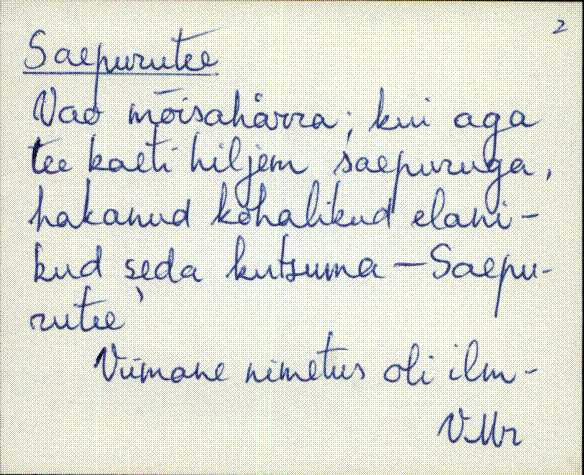 2
Saepurutee
Vao mõisahärra; kui aga
tee kaeti hiljem saepuruga,
hakanud kohalikud elani-
kud seda kutsuma – Saepu-
rutee'
Viimane nimetus oli ilm-
VMr